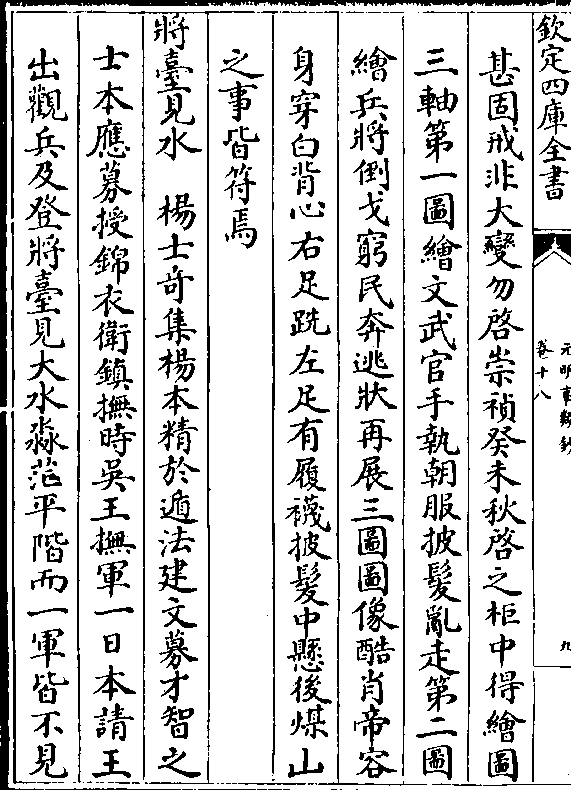 欽定四庫全書
元明事類鈔
卷十八
九
甚固戒非大變勿啓崇禎癸未秋啓之柜中得繪圖
三軸第一圖繪文武官手執朝服披髮亂走第二圖
繪兵將倒戈窮民奔逃狀再展三圖圖像酷肖帝容
身穿白背心右足跣左足有履襪披髮中懸後煤山
之事皆符焉
將臺見水　楊士奇集楊本精於遁法建文募才智之
士本應募授錦衣衛鎮撫時吳王撫軍一日本請王
出觀兵及登將臺見大水淼茫平階而一軍皆不見